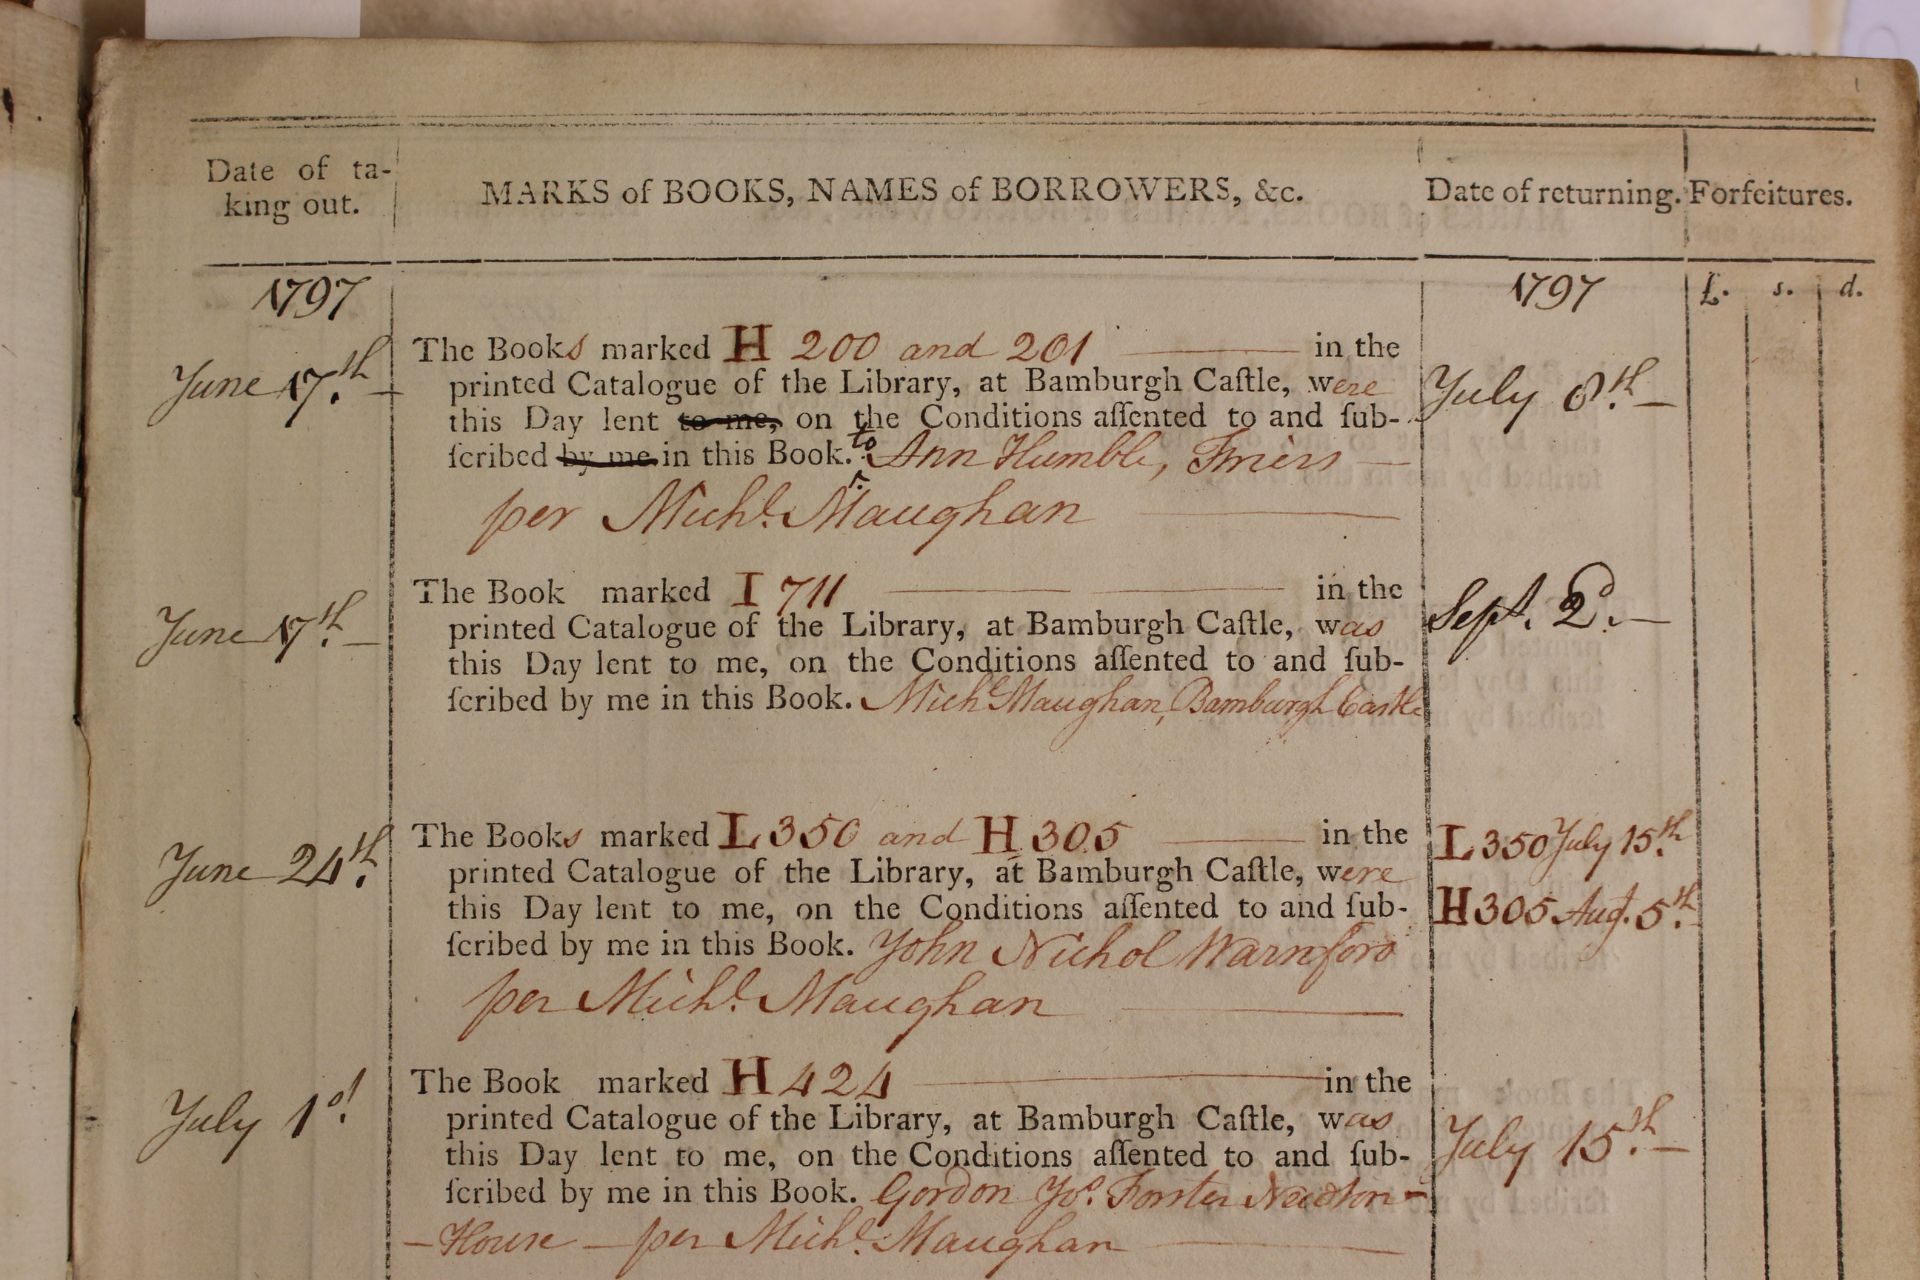 Date of ta-
king out.
MARKS of BOOKS, NAMES of BORROWERS, &c.
Date of returning.
Forfeitures.
1797
1797
£. s. d.
June 17.th
The Books marked H 200 and 201 in the
printed Catalogue of the Library, at Bamburgh Caſtle, were
this Day lent to me, on the Conditions aſſented to and ſub-
ſcribed by me in this Book. to Ann Humble, Friers
per Mich.l Maughan
July 8.th
June 17.th
The Book marked I 711 in the
printed Catalogue of the Library, at Bamburgh Caſtle, was
this Day lent to me, on the Conditions aſſented to and ſub-
ſcribed by me in this Book. Mich.l Maughan, Bamburgh Castle
Sept. 2.d
June 24.th
The Books marked L 350 and H 305 in the
printed Catalogue of the Library, at Bamburgh Caſtle, were
this Day lent to me, on the Conditions aſſented to and ſub-
ſcribed by me in this Book. John Nichol Warnford
per Mich.l Maughan
L 350 July 15.th
H 305 Aug.t 5.th
July 1.st
The Book marked H 424 in the
printed Catalogue of the Library, at Bamburgh Caſtle, was
this Day lent to me, on the Conditions aſſented to and ſub-
ſcribed by me in this Book. Gordon Jo.s Forster Newton-
-House - per Mich.l Maughan
July 15.th